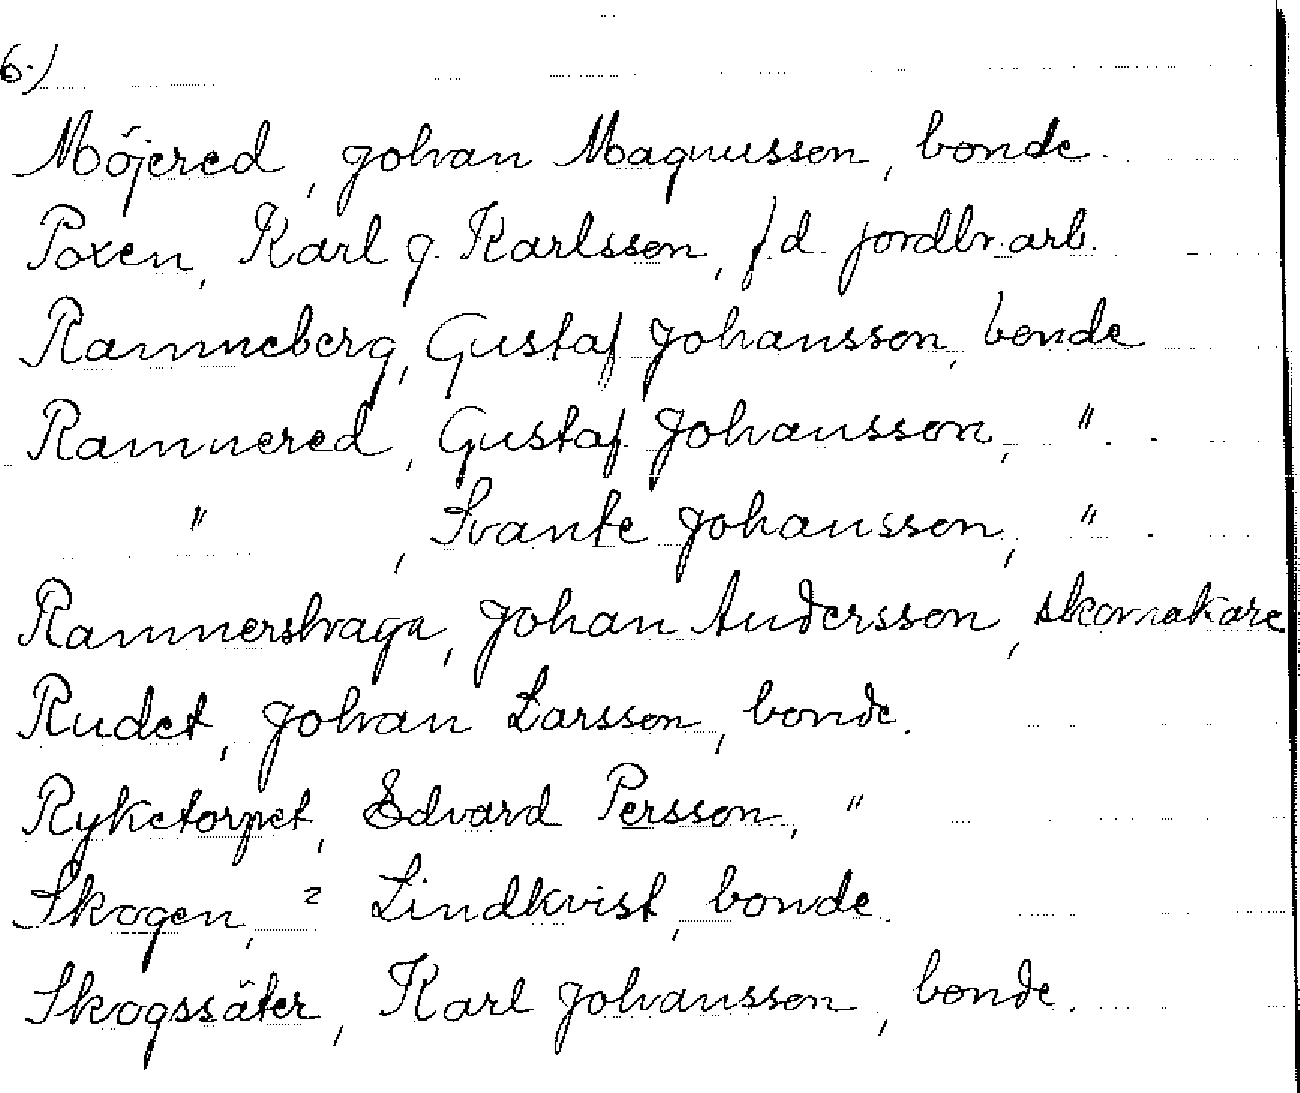 6.)
Möjered, Johan Magnusson, bonde.
Poxen, Karl J. Karlsson, f d jordbr.arb.
Ramneberg, Gustaf Johansson, bonde
Ramnered, Gustaf Johansson, "
" , Svante Johansson, "
Ramnershraga, Johan Andersson, skomakare
Rudet, Johan Larsson, bonde.
Ryketorpet, Edvard Persson, "
Skogen, ? Lindkvist, bonde.
Skogssäter, Karl Johansson, bonde.